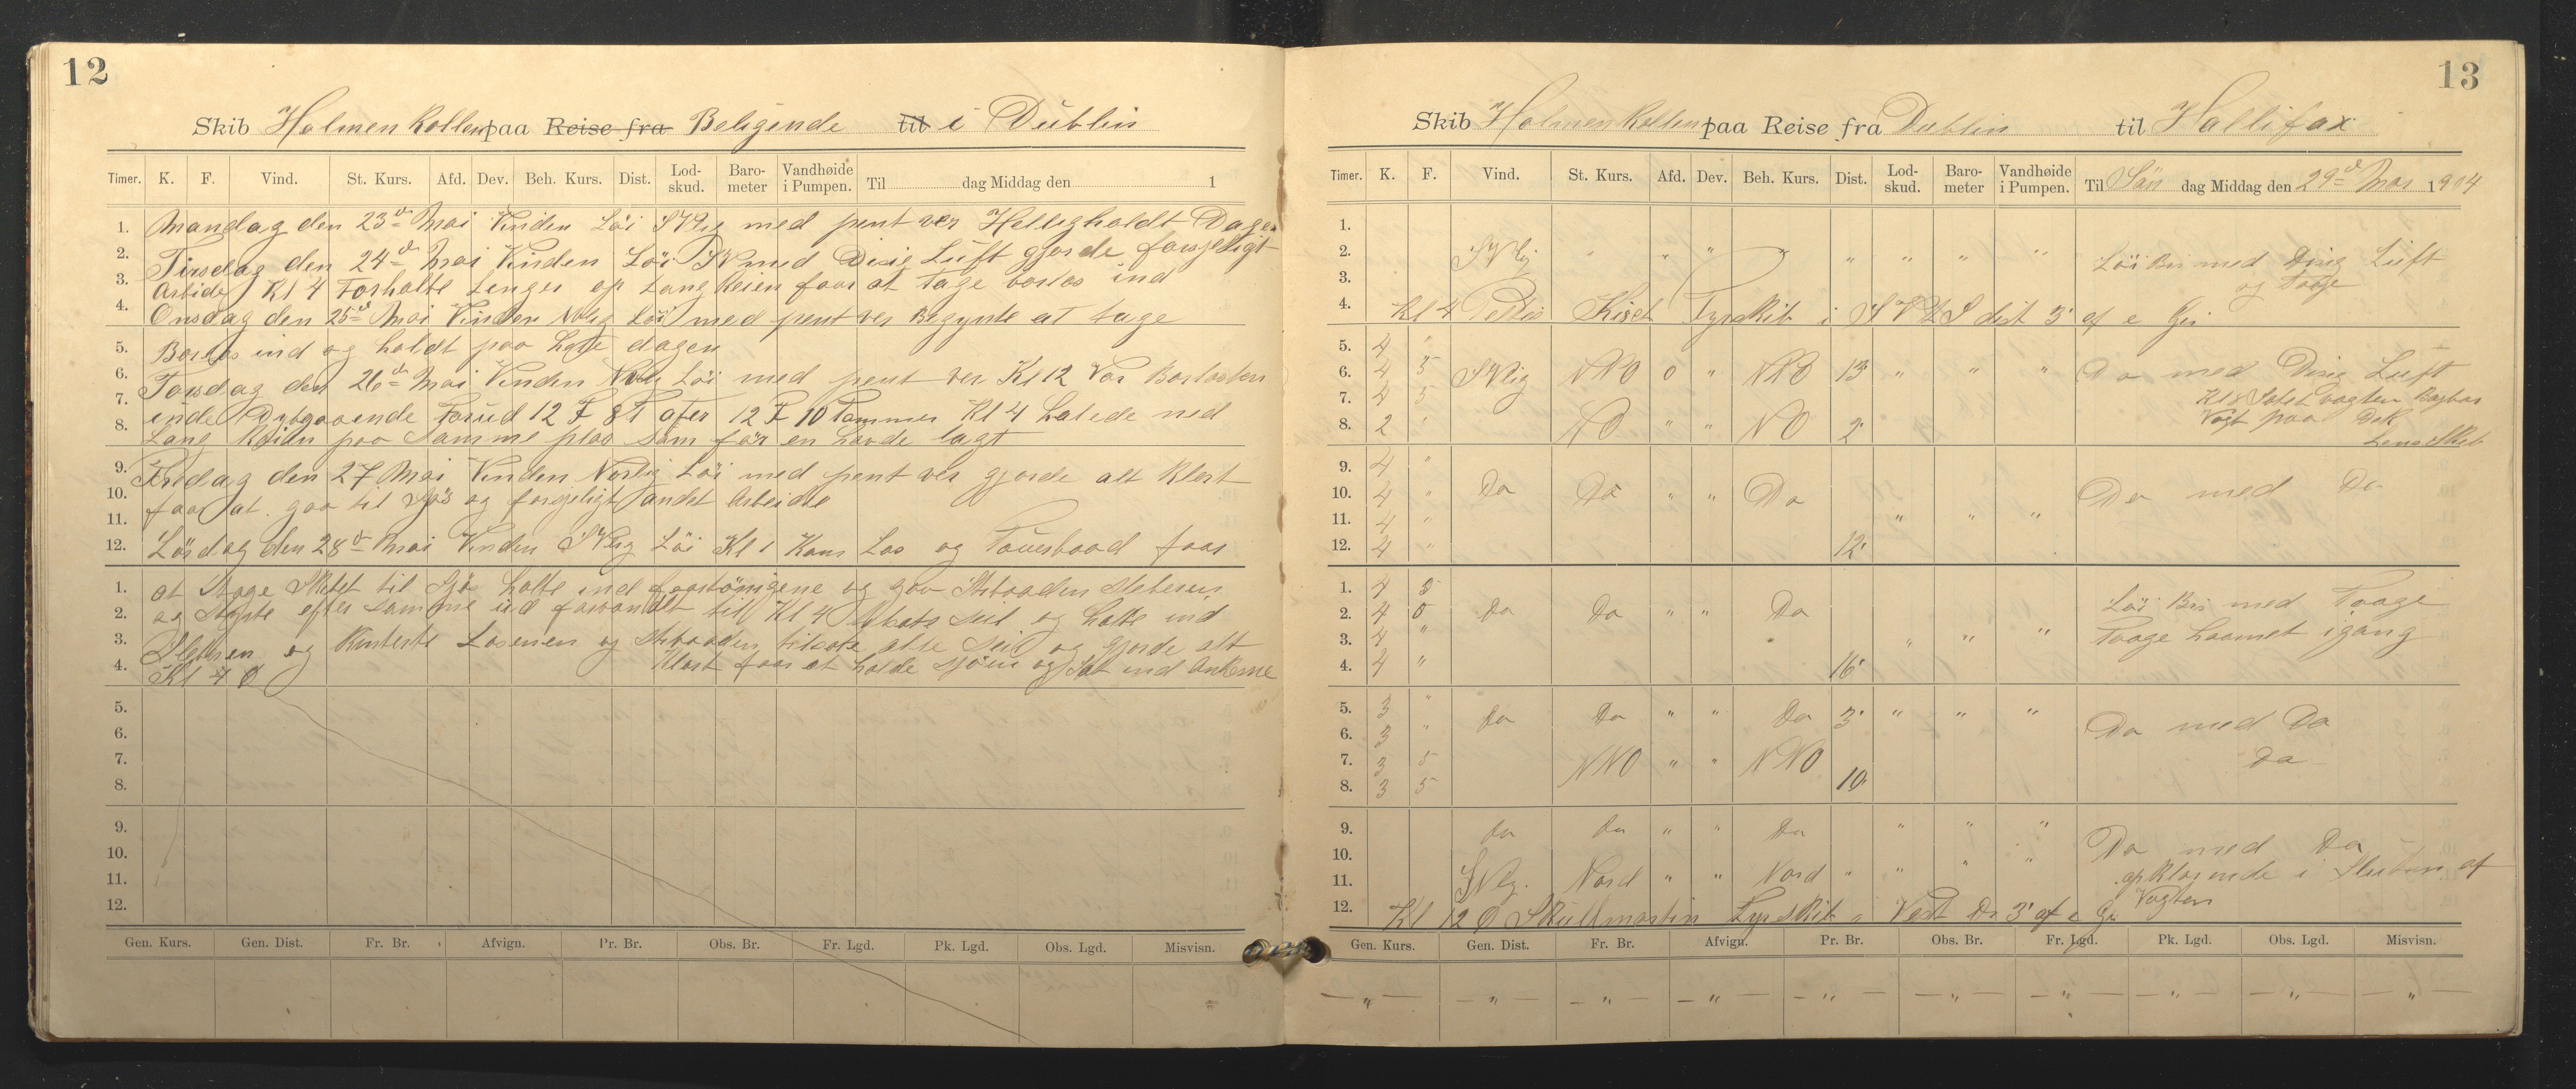 12
Skib Holmenkollen paa Reise fra Beligende til i Dublin
Timer. K. F. Vind. St. Kurs. Afd. Dev. Beh. Kurs. Dist. Lod-skud. Baro-meter Vandhøide i Pumpen. Til dag Middag den 1
1. Mandag den 23d Mai Vinden Löi SVlig med pent ver Helligholdt Dagen
2. Tirsdag den 24d Mai Vinden Löi SV med Disig Luft gjorde forsjeligt
3. Arbide Kl 4 Forhalte Lenger op Lang Keien faar at Tage barlas ind
4. Onsdag den 25d Mai Vinden Nvlig Löi med pent ver Begynte at tage
5. Barlas ind og holdt paa hele dagen
6. Torsdag den 26d Mai Vinden Nvlig Löi med pent ver Kl 12 Var Barlasten
7. inde Dybgaaende Forud 12 F 8 T after 12 F 10 Tommer Kl 4 Halede ned
8. Lang Keien paa Samme plas som för en havde lagt
9. Fredag den 27 Mai Vinden Norlig Löi med pent ver gjorde alt klart
10. faar at gaa til Sjös og forsjeligt andet Arbeide
11.
12. Lördag den 28d Mai Vinden SVlig Löi Kl 1 Kom Los og Touerbaad faar
1. at Tage Skibet til Sjös halte ind faartöningene og gav
2. og efter samme ud Kl 4 seil og halte ind
3. og Kviterte Losenen og alle Seil og gjorde alt
4. Klart faar at holde sjöen og Sat ind Ankerne
Kl 4 0
5.
6.
7.
8.
9.
10.
11.
12.
Gen. Kurs. Gen. Dist. Fr. Br. Afvign. Pr. Br. Obs. Br. Fr. Lgd. Pk. Lgd. Obs. Lgd. Misvisn.
13
Skib Holmenkollen paa Reise fra Dublin til Hallifax
Timer. K. F. Vind. St. Kurs. Afd. Dev. Beh. Kurs. Dist. Lod-skud. Baro-meter Vandhøide i Pumpen. Til Sön dag Middag den 29d Mai 1904
1.
2. SVlig " " " " " " " " Löi Bris med Disig Luft
3. og Taage
4. Kl 4 Peiles Kiset Fyrskib i SVtS dist 3' af e Gis
5. 4 "
6. 4 5 SVlig NNO 0 " NNO 13 " " " Do med Disig Luft
7. 4 5 Kl 8 Satet vagten Bagbor
8. 2 " NO " " NO 2' Vagt paa Dek
Lens Skib
9. 4 "
10. 4 " Do Do " " Do Do med Do
11. 4 " " " "
12. 4 " 12'
1. 4 5 Löi Bris med Taage
2. 4 0 Do Do " " Do
3. 4 " " " " Taage Haarnet igang
4. 4 " 16'
5. 3 " Do Do " " Do 3' " " " Do med Do
6. 3 "
7. 3 5 NNO " " NNO Do
8. 3 5 10'
9. Do Do " " Do " " " Do med Do
10.
11. SVlg. Nord " " Nord " " " " opklarende i Slutten af
Vagten
12. Kl 12 0 Skullmartin Fyrskib i Vest Ds 3' af e Gis
Gen. Kurs. Gen. Dist. Fr. Br. Afvign. Pr. Br. Obs. Br. Fr. Lgd. Pk. Lgd. Obs. Lgd. Misvisn.
— " — — " — — " — — " — — " — — " — — " — — " — — " — — " —